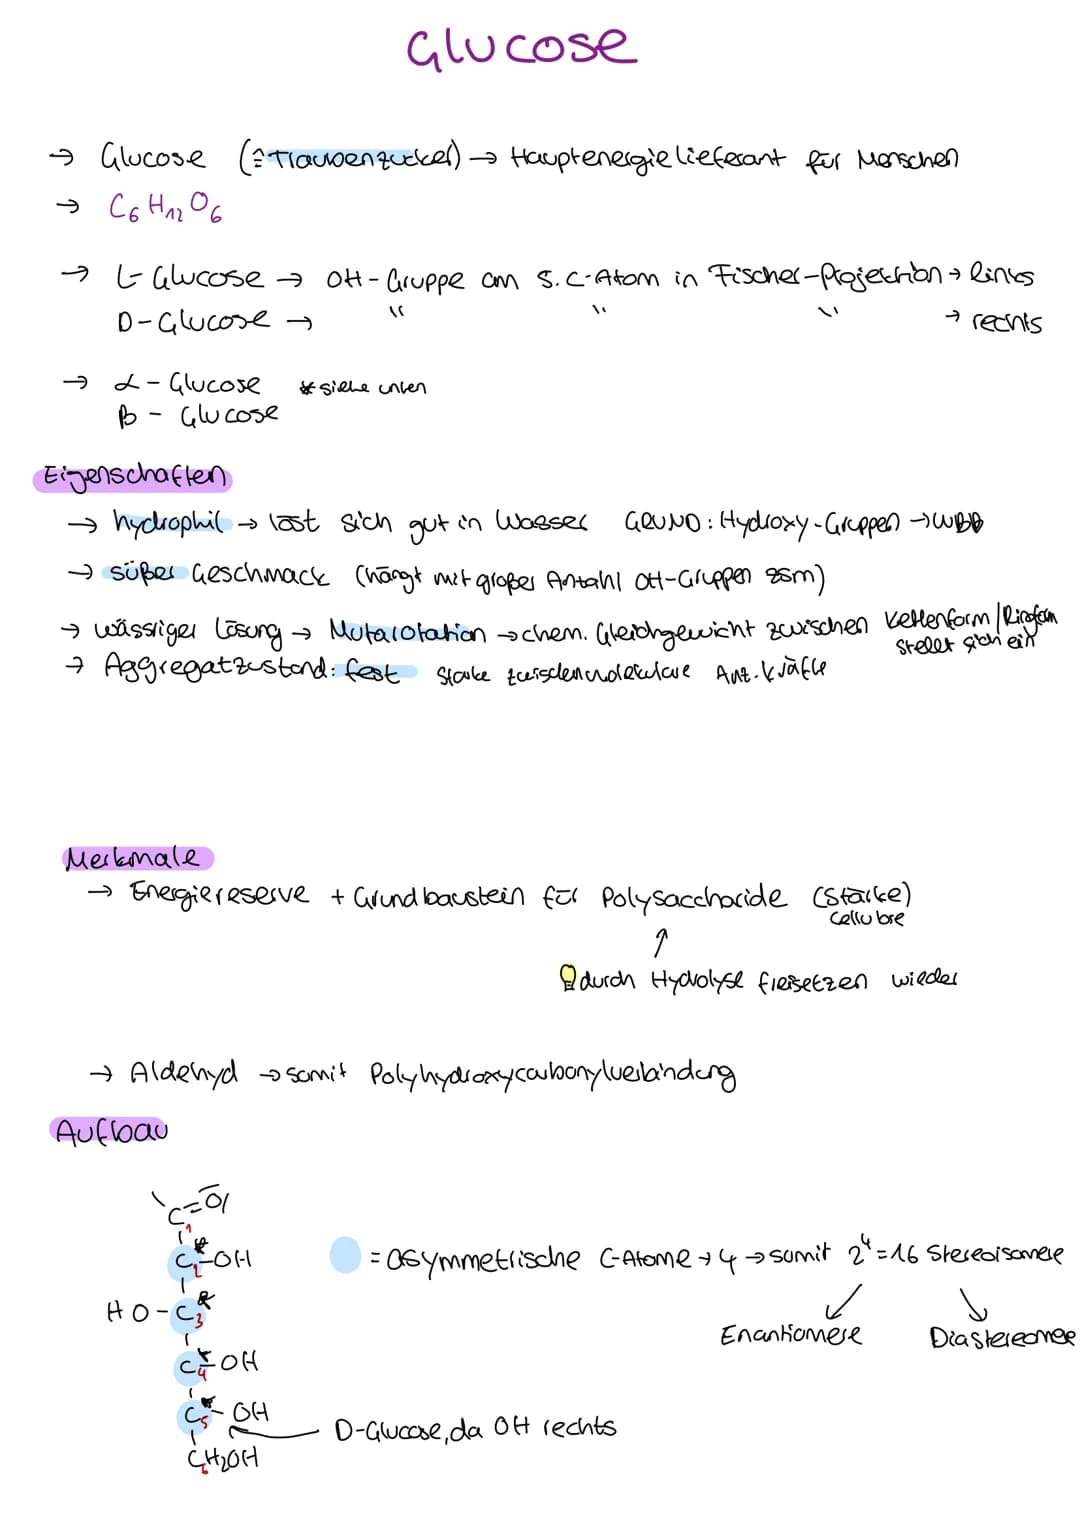 Glucose
→ Glucose (≙Traubenzucker) → Hauptenergielieferant für Menschen
→ C6H12O6
→ L-Glucose → OH-Gruppe am 5. C-Atom in Fischer-Projektion → links
D-Glucose → " " " → rechts
→ α - Glucose * siehe unten
β - Glucose
Eigenschaften
→ hydrophil → löst sich gut in Wasser GRUND: Hydroxy-Gruppen → WBB
→ süßer Geschmack (hängt mit großer Antahl OH-Gruppen zsm)
→ wässriger Lösung → Mutarotation → chem. Gleichgewicht zwischen Kettenform/Ringform
stellt sich ein
→ Aggregatzustand: fest starke zwischenmolekulare Anz.kräfte
Merkmale
→ Energiereserve + Grundbaustein für Polysaccharide (Stärke)
Cellulose
↑
durch Hydrolyse freisetzen wieder
→ Aldehyd → somit Polyhydroxycarbonylverbindung
Aufbau
C=O
1
C*-OH
2
= asymmetrische C-Atome → 4 → somit 2⁴=16 Stereoisomere
HO-C*
3
Enantiomere Diastereomere
C*-OH
4
C*-OH
5
D-Glucose, da OH rechts
CH2OH
6